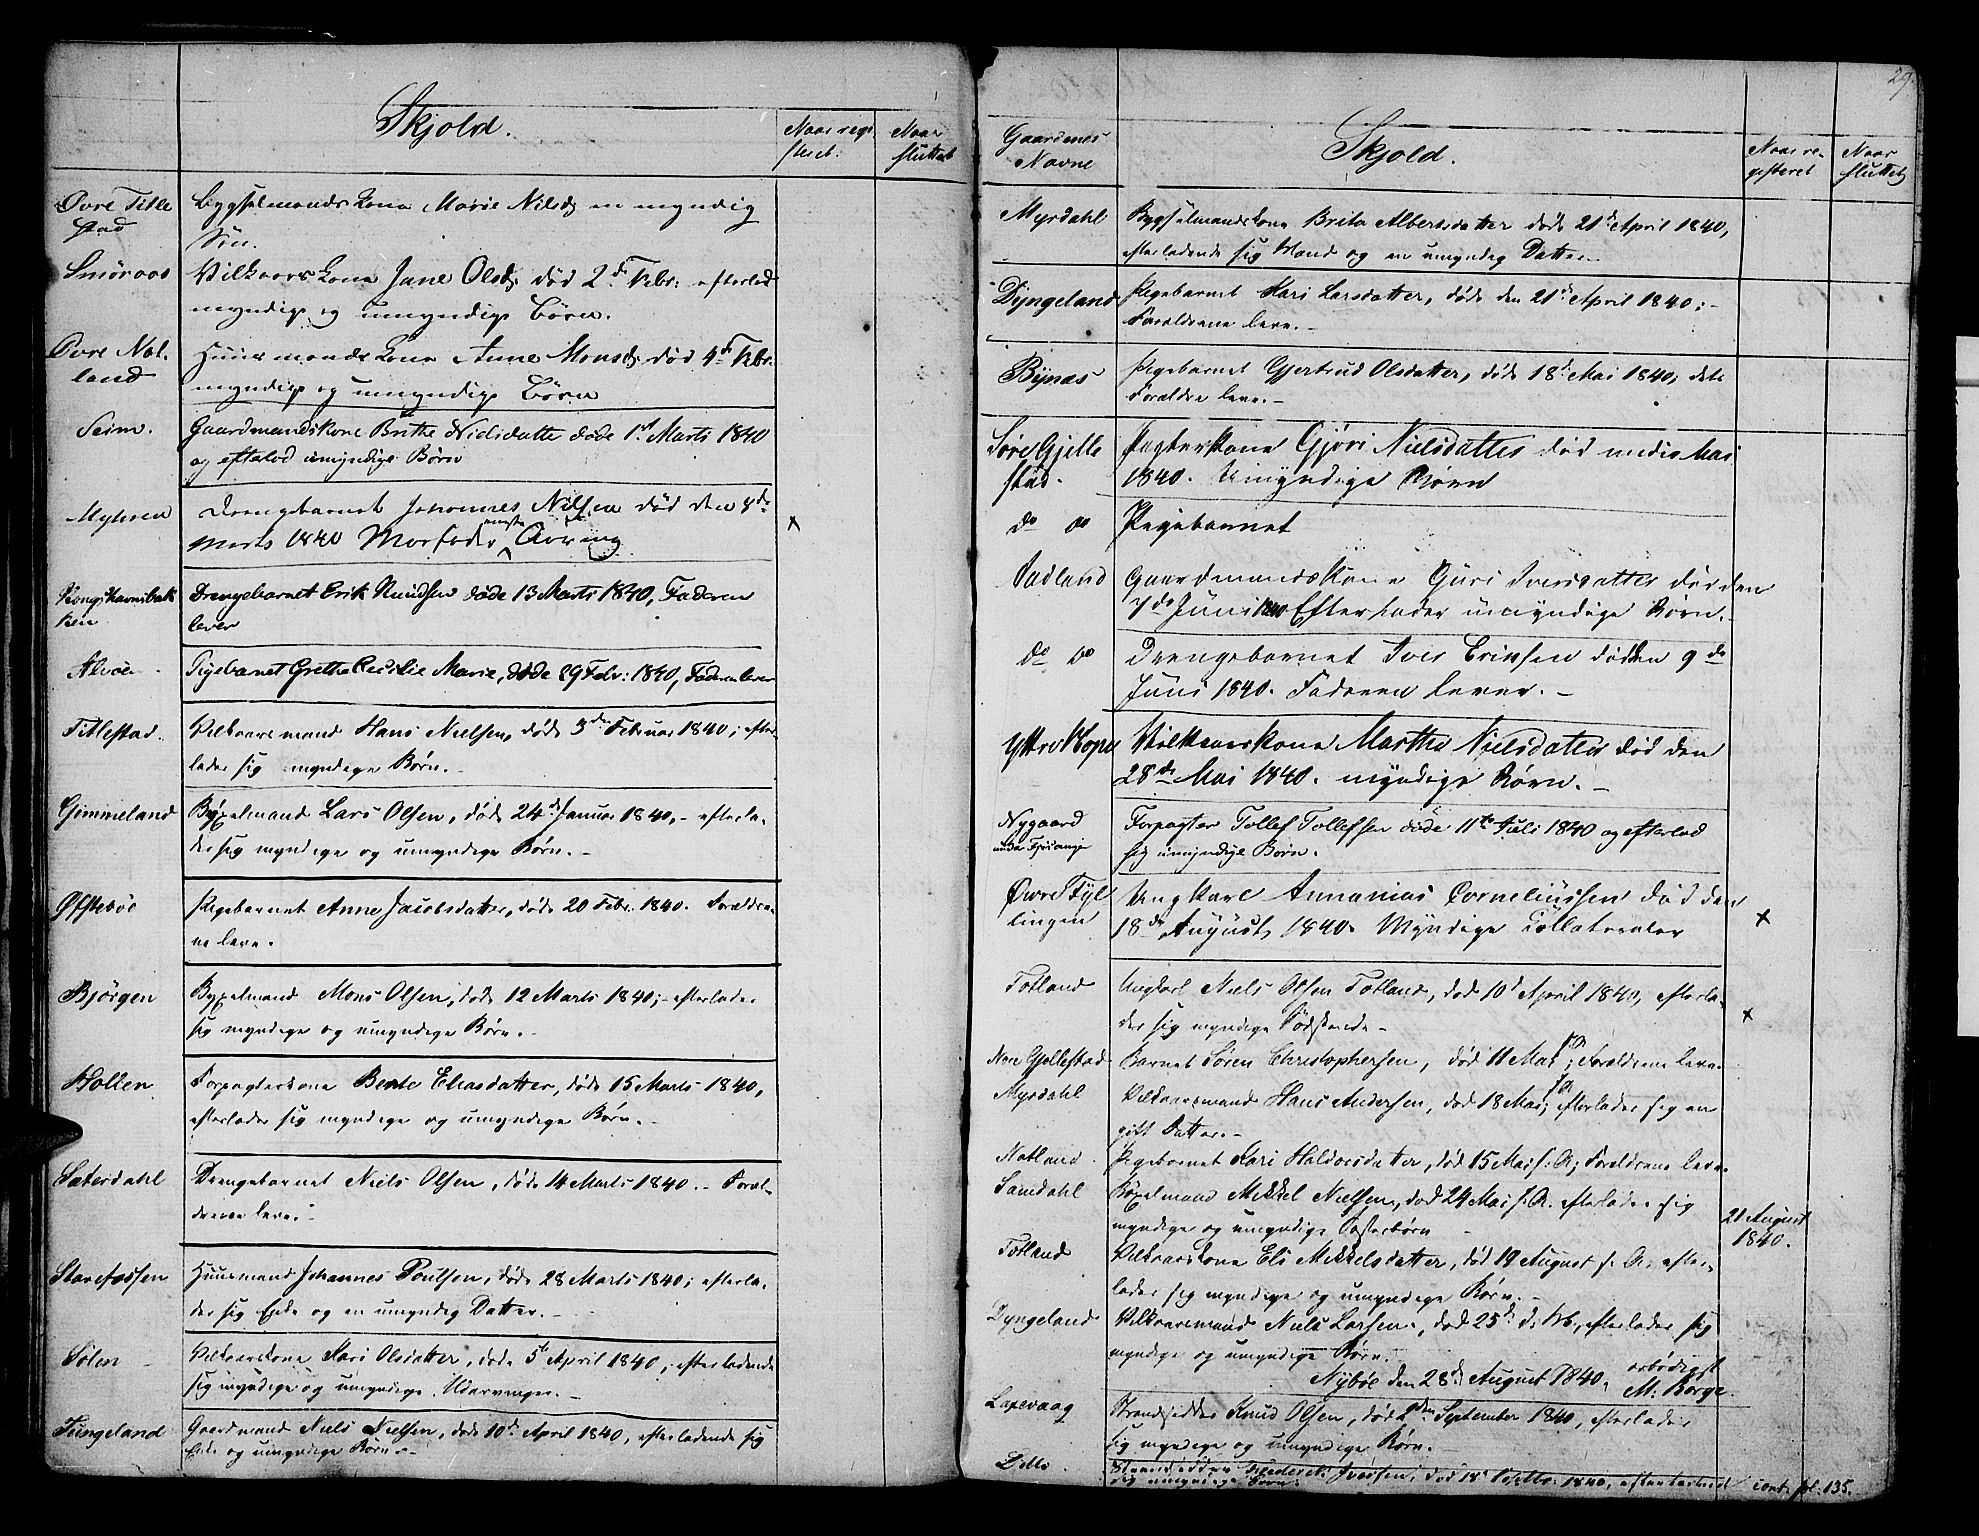 Skjold.
Naar regi
steret.
Naar
sluttet
Øvre Title
stad
Bygselmands Kone Marie Nilsd. en myndig
Søn.
Smøraas
Vilkaars Kone Jane Olsd. død 2d Febr: efterlod
myndige og umyndige Börn.
Øvre Nat-
land
Huusmands Kone Anne Monsd. død 4d Febr.
myndige og umyndige Börn
Seim.
Gaardmandskone Brithe Nielsdatter døde 1st Marts 1840
og efterlod umyndige Børn
Myhren
Drengebarnet Johannes Nilsen død den 8de
Marts 1840 Morfader Arving
Kongshavnsbak
ken
Drengebarnet Erik Knudsen døde 13 Marts 1840, Faderen
lever
Alvøe
Pigebarnet Grethe Cecilie Marie, døde 29 Febr: 1840, Faderen lever
Titlestad.
Vilkaarsmand Hans Nielsen, døde 3den Februar 1840; efter-
lader sig myndige Børn.-
Gimmeland
Bÿxelmand Lars Olsen, døde 24de Januar 1840,- efterla-
der sig myndige og umyndige Børn.-
Øfstebøe
Pigebarnet Anne Jacobsdatter, døde 20 Febr. 1840. Forældre-
ne leve.
Bjørgen
Byxelmand Mons Olsen, døde 12 Marts 1840;- efterlader
sig myndige og umyndige Børn.-
Holten
Forpagterkone Bente Eliasdatter, døde 15 Marts 1840,
efterlader sig myndige og umyndige Børn.-
Sætersdahl
Drengebarnet Niels Olsen, døde 14 Marts 1840.- Foræl-
drene leve.-
Starefossen
Huusmand Johannes Poulsen, døde 28 Marts 1840; efterla-
der sig Enke og en umyndig Datter.-
Sølen
Vilkaarskone Kari Olsdatter, døde 5te April 1840; efterladende
sig myndige og umyndige Udarvinger.-
Tungeland
Gaardmand Niels Nielsen, døde 10de April 1840, efterladende sig
Enke og umyndige Børn.-
29.
Gaardenes
Navne
Skjold.
Naar re-
gisteret
Naar
sluttet
Myrdahl
Bygselmandskone Brita Albertsdatter døde 21de April 1840,
efterladende sig Mand og en umyndig Datter.-
Dyngeland
Pigebarnet Kari Larsdatter, døde den 21de April 1840;-
Forældrene leve.-
Bÿnæs
Pigebarnet Gjertrud Olsdatter, døde 18de Mai 1840; dets
Forældre leve.-
Søre Gjelle
stad.
Pagterkone Gjøri Nielsdatter død medio Mai
1840. Umyndige Børn
do do
Pigebarnet
Sadland
Gaardmandskone Guri Iversdatter død den
7de Juni 1840 Efterlader umyndige Børn.
do do
Drengebarnet Iver Erinsen død den 9de
Juni 1840. Faderen lever.-
Yttre Kopu
Vilkaarskone Marthe Nielsdatter død den
28de Mai 1840. myndige Børn.-
Nygaard
under Fjøsanger
Forpagter Tollef Tollefsen døde 11te Juli 1840 og efterlod
sig umyndige Børn.
Øvre Fyl
lingen
Ungkarl Annanias Corneliussen død den
18de August 1840. Myndige Collateraler
Totland
Ungkarl Niels Olsen Totland, død 10de April 1840, efterla-
der sig myndige Sødskende.-
Nore Gjellestad
Barnet Søren Christophersen, død 11 Mai s. A; Forældrene leve.
Myrdahl
Vilkaarsmand Hans Andersen, død 18 Mai s. A; efterlader sig en
gift Datter.-
Natland
Pigebarnet Kari Haldorsdatter, død 15 Mai s: A; Forældrene leve.
Samdahl
Bÿxelmand Mikkel Nielsen, død 24 Mai s. A. efterlader sig
myndige og umyndige Børn
Totland
Vilkaarskone Eli Mikkelsdatter, død 19 August s. A. efter-
lader sig myndige og umyndige Børn.-
21 August
1840.
Dyngeland
Vilkaarsmand Niels Larsen, død 25de d. M., efterlader sig
myndige og umyndige Børn.
Nybøe den 28de August 1840. ærbødigst
M: Borge.
Laxevaag
Strandsidder Knud Olsen, død 2den September 1840, efterlader
sig myndige og umyndige Børn.-
Ditto
Strandsidder Frederik Iversen, død 18d Septbr: 1840, efterladende
sig umyndige Børn.
cont. fol: 135.